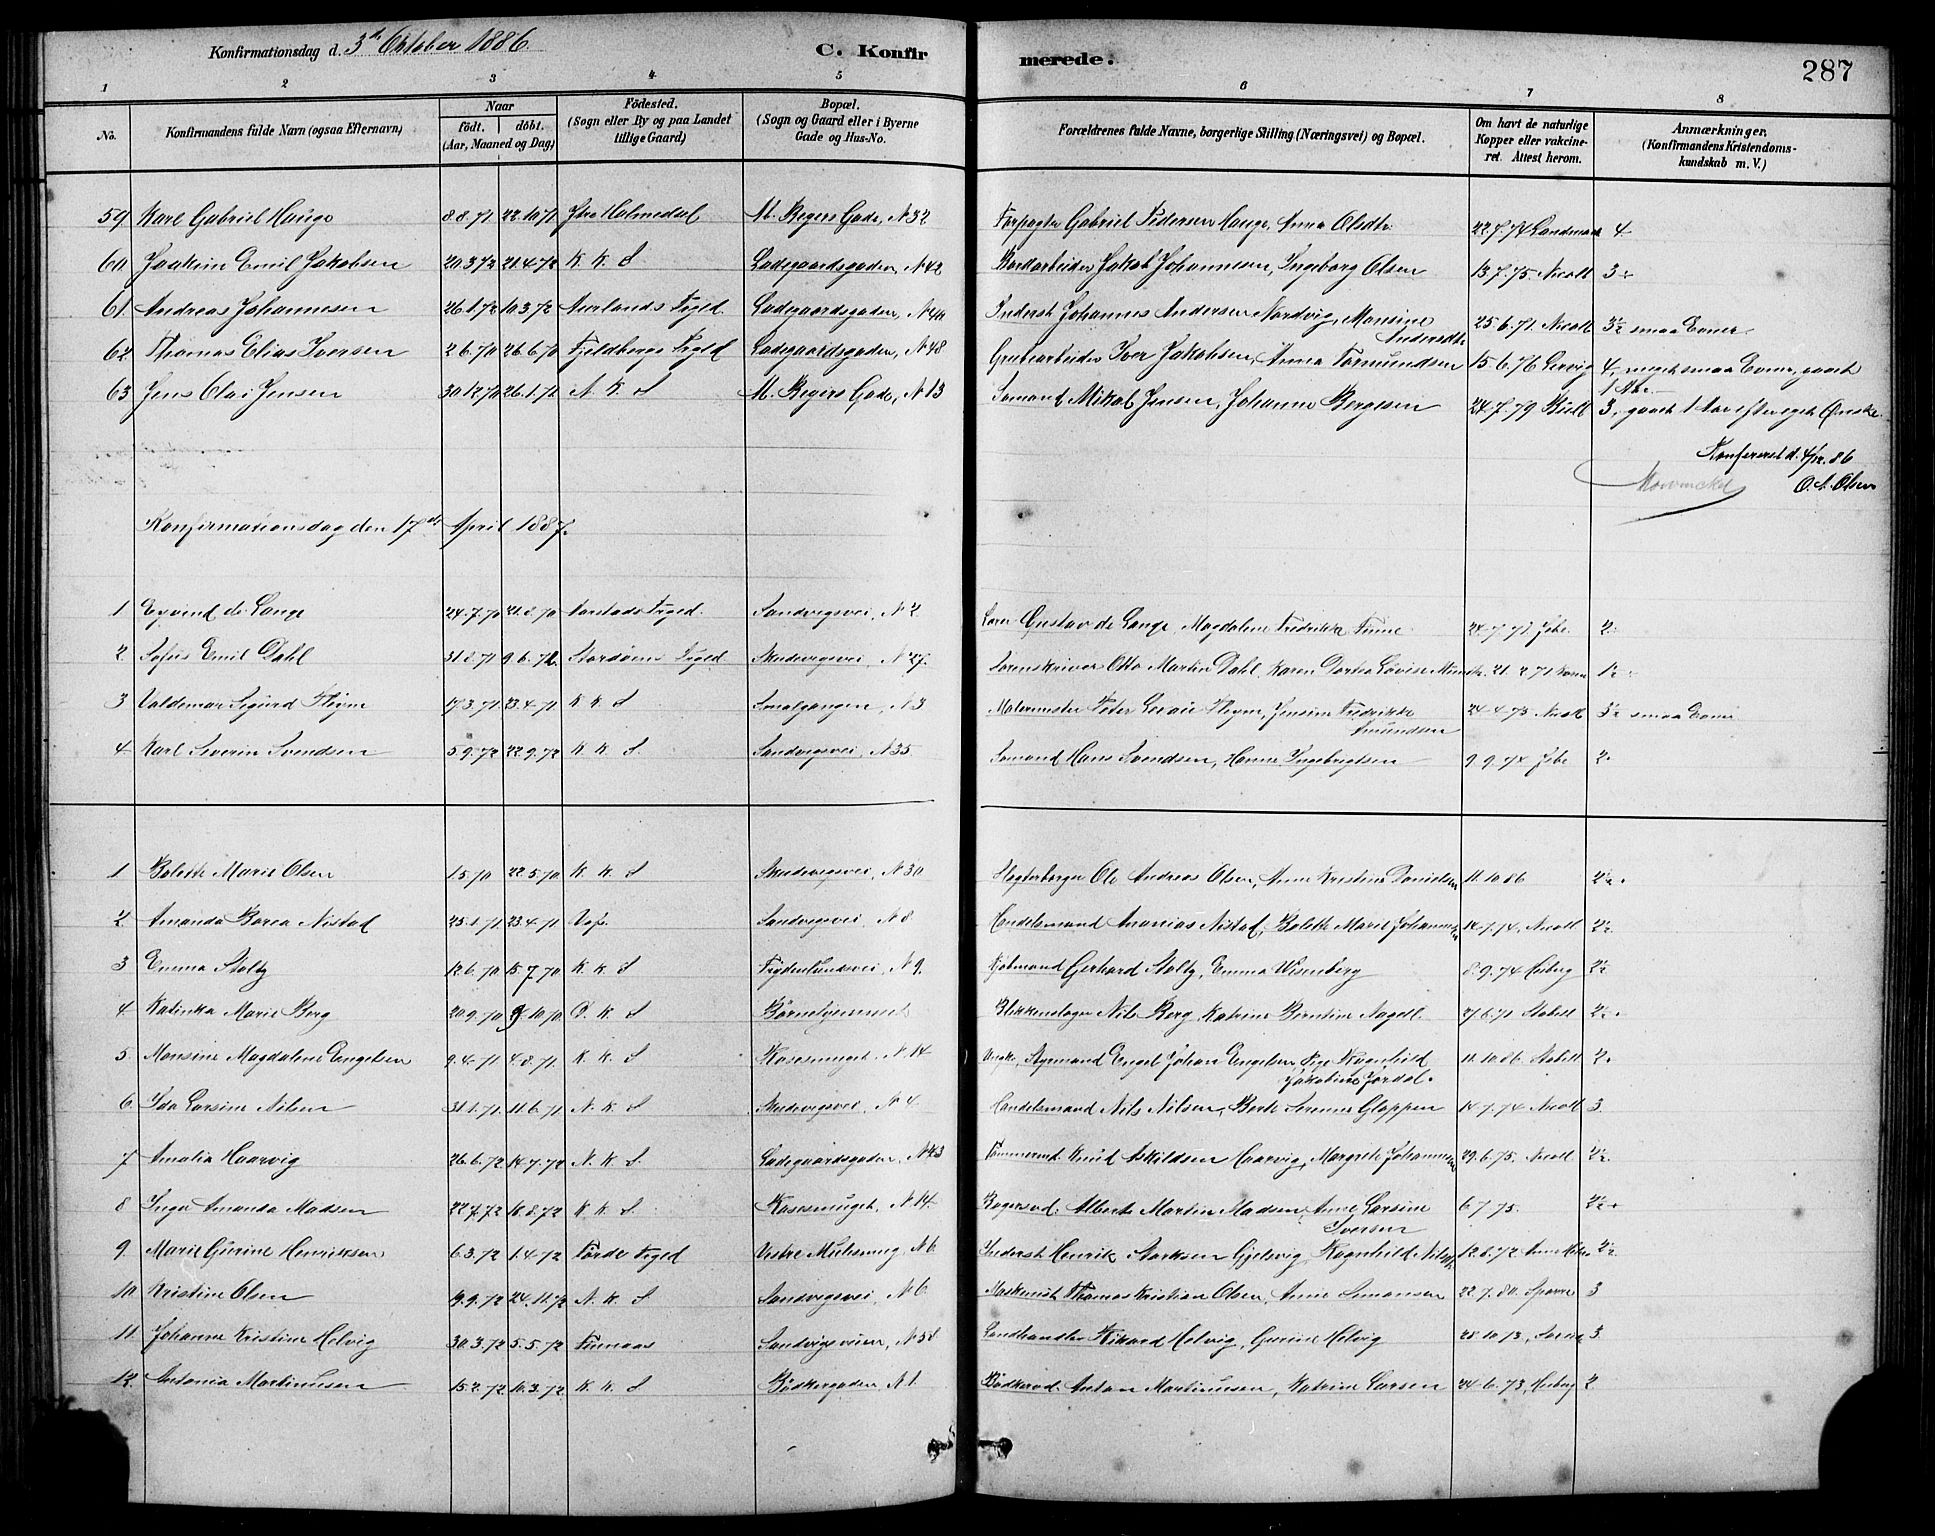 Konfirmationsdag d. 3die Oktober 1886.
C. Konfirmerede.
287
1 2 3 4 5 6 7 8
No. Konfirmandens fulde Navn (ogsaa Efternavn) Naar födt. döbt. (Aar, Maaned og Dag) Födested. (Sogn eller By og paa Landet tillige Gaard) Bopæl. (Sogn og Gaard eller i Byerne Gade og Hus-No. Forældrenes fulde Navne, borgerlige Stilling (Næringsvei) og Bopæl. Om havt de naturlige Kopper eller vakcineret. Attest herom. Anmærkninger. (Konfirmandens Kristendomskundskab m. V.)
59 Karl Gabriel Hauge 8.8.71 22.10.71 Ytre Holmedal M. Begers Gade, N 32 Forpagter Gabriel Pedersen Hauge, Anna Olsdtr. 22.7.74 Landmark 4
60 Joakim Emil Jakobsen 20.3.72 21.4.72 K. K. S Ladegaardsgaden, N 42 Jakob Johannesen, Ingeborg Olsen 13.7.75 Nicoll 3
61 Andreas Johannesen 26.1.72 10.3.72 Aurlands Prgld. Ladegaardsgaden, N 44 Inderst Johannes Andersen Nordvig, Monsine Andersdtr 25.6.71 Nicoll 3½ smaa Evner
62 Thomas Elias Iversen 2.6.70 26.6.70 Fjeldbergs Prgld Ladegaardsgaden, N 48 Grubearbeider Iver Jakobsen, Anna Tormundsen 15.6.76 Lervig 4, meget smaa Evner, gaaet 1 Aar
63 Jens Olai Jensen 30.12.70 26.1.72 N. K. S M. Begers Gade, N 13 Sömand Mikal Jensen, Johanne Bergesen 24.7.79 Bull 3, gaaet 1 Aar efter eget Önske.
Konfereret d. 4/12.86
O. A. Olsen
Konfirmationsdag den 17de April 1887.
1 Eyvind de Lange 24.7.70 21.8.70 Prgld. Sandvigsvei, N 2 Gustav de Lange, Magdalene Fredrikke Finne 24.7.71 Jebe 2
2 Sofus Emil Dahl 31.8.71 9.6.72 Stordöens Prgld Skudevigsvei, N 27. Sorenskriver Otto Martin Dahl, Karen Dortea Lovise 21.2.71 1½
3 Valdemar Sigurd Fleyne 17.3.71 23.4.71 K K S Smalgangen, N 3 Malermester Peter Fleyne, Jensine Fredrikke Amundsen 24.4.73 Nicoll 3½ smaa Evner
4 Karl Severin Svendsen 5.9.72 22.9.72 K K S. Sandvigsvei, N 35 Sömand Hans Svendsen, Hanna Ingebrigtsen 9.9.74 Jebe 2.
1 Bolette Marie Olsen 1.5.70 22.5.70 K K S Skudevigsvei, N 30 Ole Andreas Olsen, Anne Kristine Danielsen 11.10.86 2½.
2 Amanda Borea Nistad 25.1.71 23.4.71 Vos. Sandvigsvei, N 8. Handelsmand Ananias Nistad, Bolette Marie Johannesen 14.7.74. Nicoll 2½
3 Emma Stoltz 12.6.70 15.7.70 K. K. S Frydenlundsvei, N 9. Kjöbmand Gerhard Stoltz, Emma Wisenberg 8.9.74 Heiberg 2½
4 Katinka Marie Berg 20.9.70 9.10.70 D. K. S Börnehjemmet Blikkenslager Nils Berg, Katrine Berntine Nagell. 27.6.71 Stabell 2½.
5. Monsine Magdalene Engelsen 9.4.71 4.8.71. K. K. S Rosesmuget, N 14 Styrmand Engel Johan Engelsen, Pige Ragnhild Jakobine Jordal. 11.10.86. Stabell 2.
6. Ida Larsine Nilsen 31.1.71. 11.6.71 N. K. S Skudevigsvei, N 4. Handelsmand Nils Nilsen, Berte Serenne Gloppen 14.7.74 Nicoll 3.
7 Amalia Haarvig 26.6.72 14.7.72 N. K. S. Ladegaardsgaden, N 43 Tömmermd. Knud Askildsen Haarvig, Margrete Johannesen 29.6.75. Nicoll 2½
8 Inga Amanda Madsen 22.7.72 18.8.72 K K S Rosesmuget, N 14. Bagersvd. Albert Martin Madsen, Anne Larsine Iversen 6.7.75. 2½.
9. Marie Gurine Henriksen 6.3.72 1.4.72 Förde Prgld Vestre Mulesmug, N 6 Inderst Henrik Gjelsvig, Ragnhild Nilsdtr 12.8.72 2½
10 Kristine Olsen 19.9.72 24.11.72 N. K. S Sandvigsvei, N 6. Maskinist Thomas Kristian Olsen, Anne Simonsen 22.7.80. Sparre 3
11. Johanne Kristine Helvig 30.3.72 5.5.72 Finnaas Sandvigsveien, N 58 Landhandler Rikard Helvig, Gurine Helvig 28.10.73, 3.
12. Antonia Martinusen 15.2.72 10.3.72. K. K. S Bödkergaden, N 1. Bödkersvd. Anton Martinusen, Katrine Larsen 24.6.73, Heiberg 2